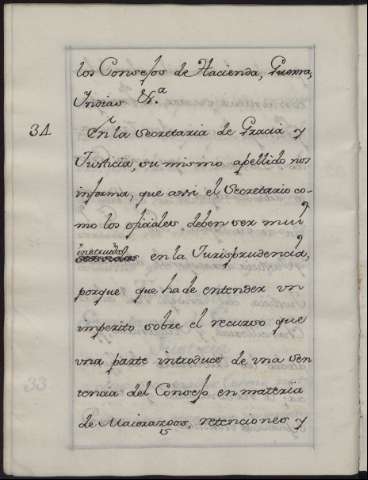 los Consejos de Hacienda, Guerra,
Indias &.ª
34 En la Secretaria de Gracia y
Justicia, su mismo apellido nos
informa, que assi el Secretario co-
mo los oficiales, deben ser mui
instruidos
en la Jurisprudencia,
porque que ha de entender un
imperito sobre el recurso que
una parte introduce de una sen
tencia del Consejo en materia
de Maiorazgos, retenciones y
33